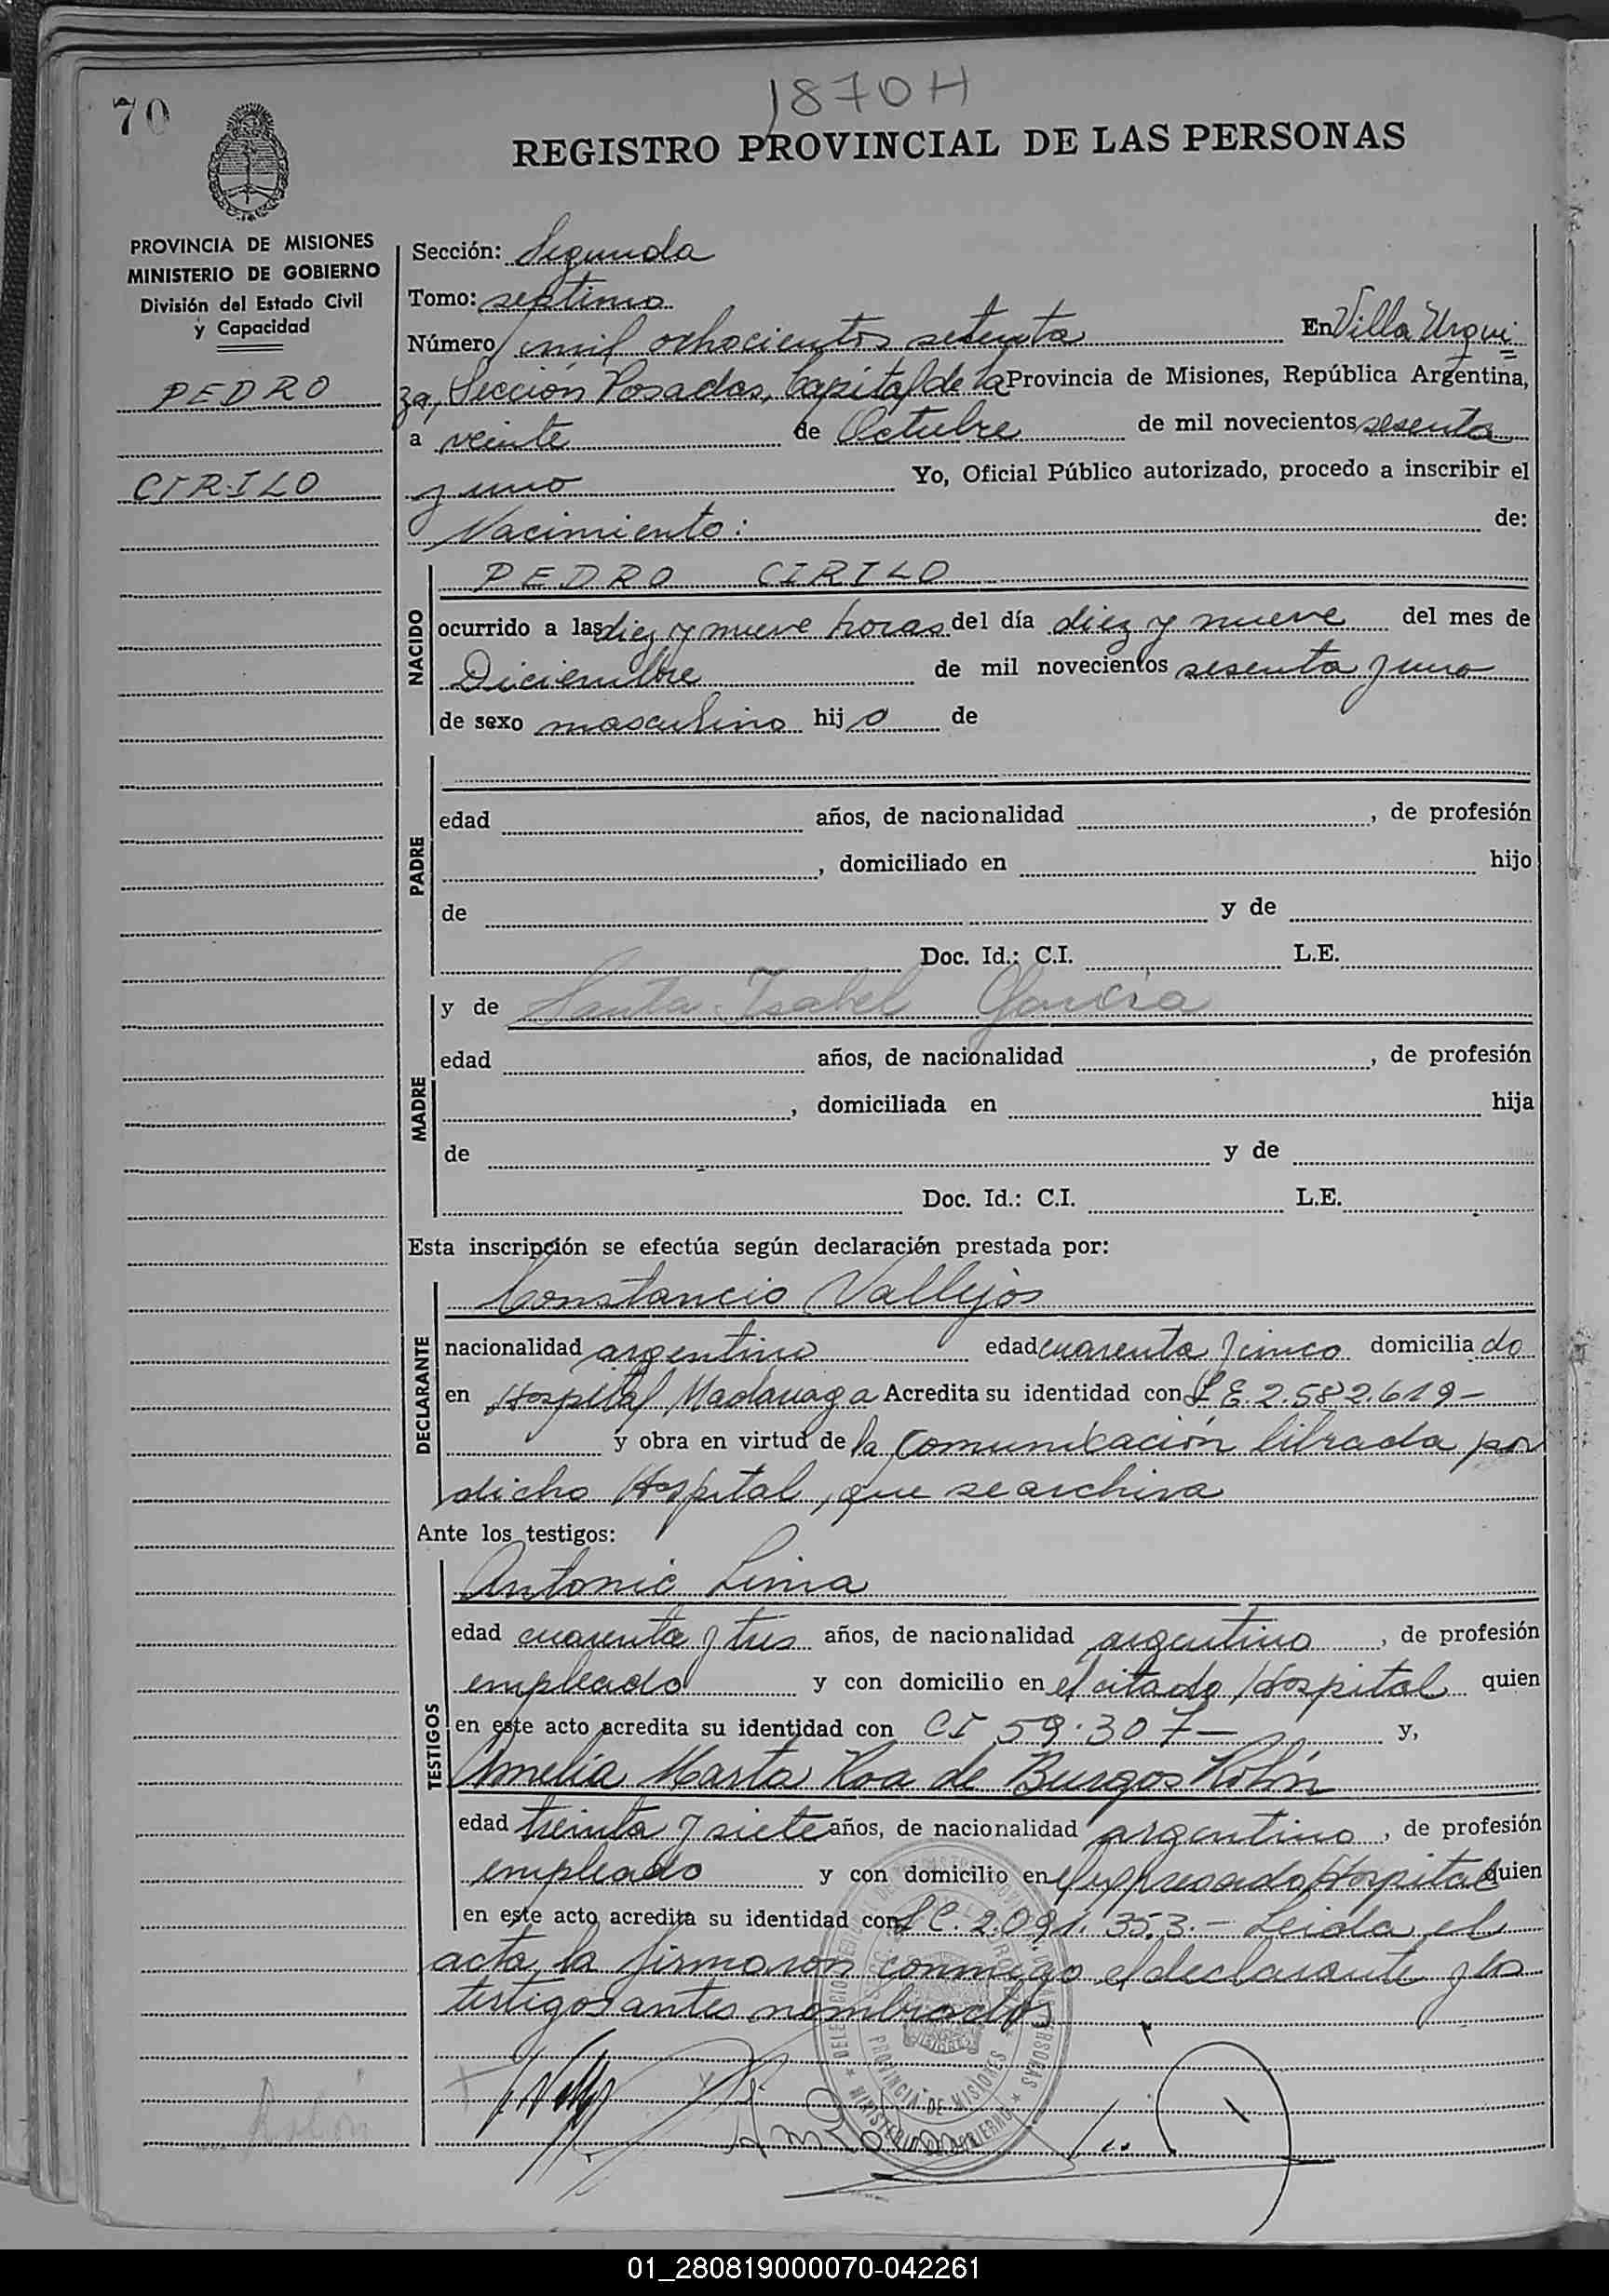 1870H
70
REGISTRO PROVINCIAL DE LAS PERSONAS
PROVINCIA DE MISIONES
MINISTERIO DE GOBIERNO
División del Estado Civil
y Capacidad
PEDRO
CIRILO
Sección: Segunda
Tomo: septimo
Número mil ochocientos setenta En Villa Urqui
za, Sección Posadas, Capital de la Provincia de Misiones, República Argentina,
a veinte de Octubre de mil novecientos sesenta
y uno Yo, Oficial Público autorizado, procedo a inscribir el
Nacimiento: de:
NACIDO
PEDRO CIRILO
ocurrido a las diez y nueve horas del día diez y nueve del mes de
Diciembre de mil novecientos sesenta y uno
de sexo masculino hijo de
PADRE
edad años, de nacionalidad , de profesión
, domiciliado en hijo
de y de
Doc. Id.: C.I. L.E.
MADRE
y de Santa Isabel García
edad años, de nacionalidad , de profesión
, domiciliada en hija
de y de
Doc. Id.: C.I. L.E.
Esta inscripción se efectúa según declaración prestada por:
DECLARANTE
Constancio Vallejos
nacionalidad argentino edad cuarenta y cinco domiciliado
en Hospital Madariaga Acredita su identidad con L E. 2.582.619-
y obra en virtud de la comunicación librada por
dicho Hospital, que se archiva
Ante los testigos:
TESTIGOS
Antonio Lima
edad cuarenta y tres años, de nacionalidad argentino, de profesión
empleado y con domicilio en el citado Hospital quien
en este acto acredita su identidad con CI 59.307- y,
Amelia Marta Roa de Burgos Rolón
edad treinta y siete años, de nacionalidad argentino, de profesión
empleado y con domicilio en el expresado Hospital quien
en este acto acredita su identidad con L C. 2.091.353.- Leida el
acta la firmaron conmigo el declarante y los
testigos antes nombrados
PROVINCIA DE MISIONES
MINISTERIO DE GOBIERNO
Rolón
01_280819000070-042261